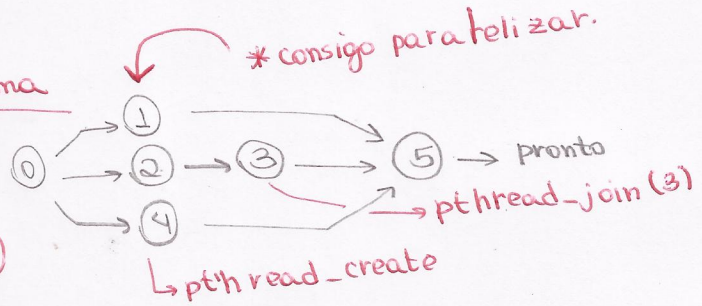 * consigo paralelizar.
ma
1
0 2 3 5 pronto
pthread_join(3)
4
pthread_create